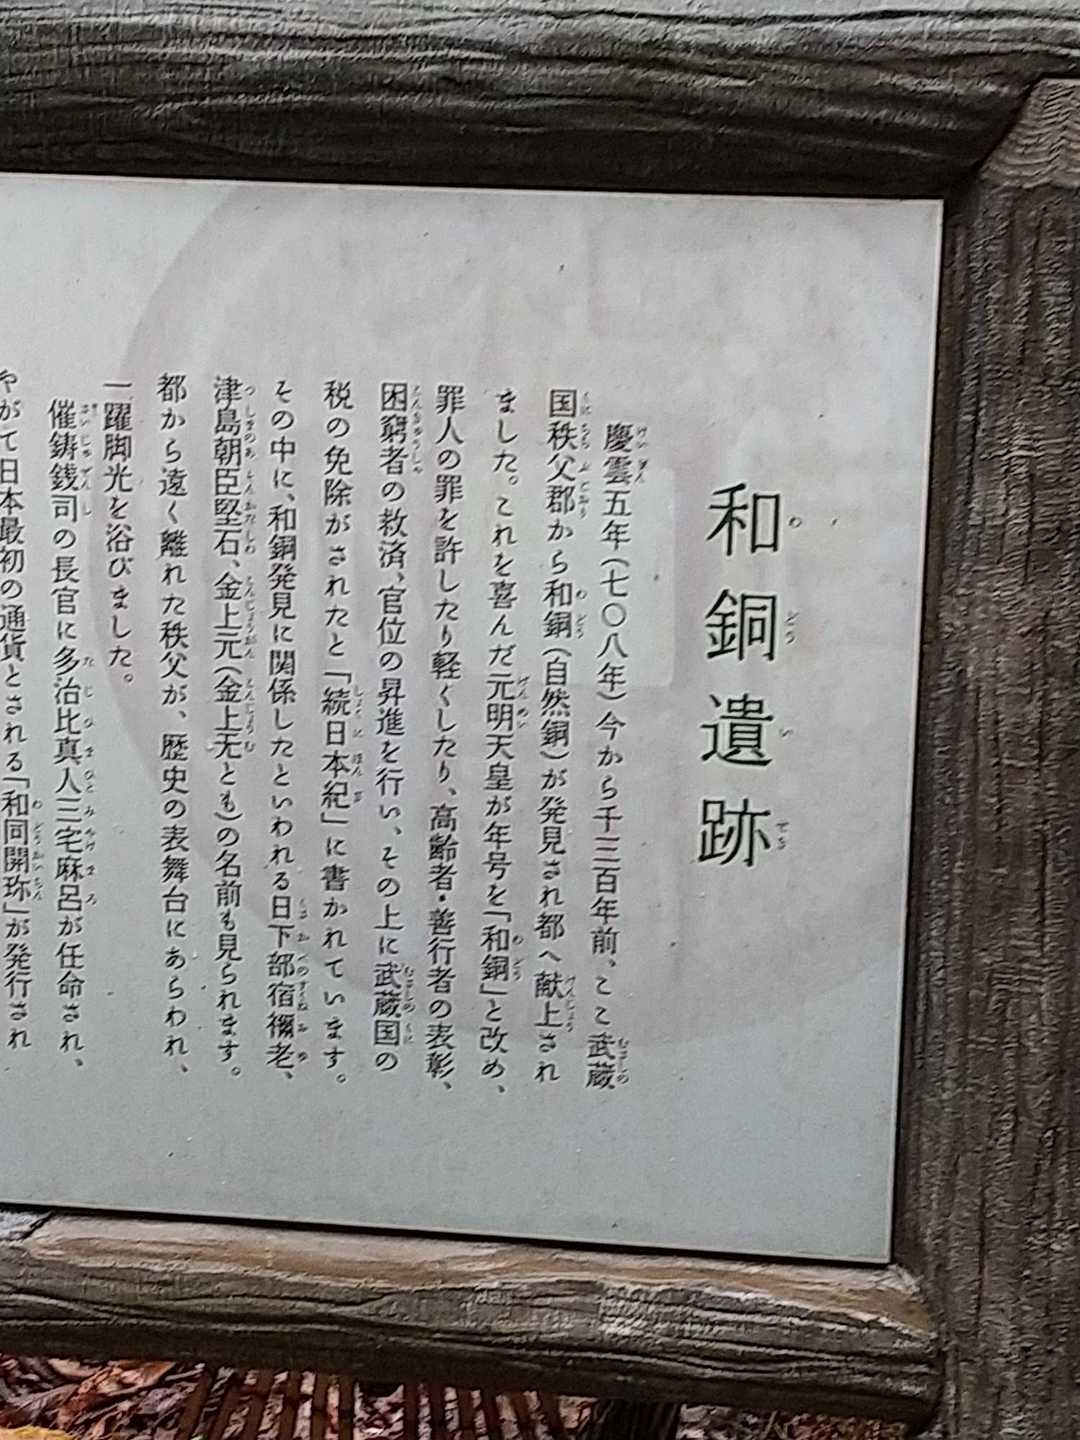 和銅遺跡
慶雲五年(七〇八年)今から千三百年前、ここ武蔵
国秩父郡から和銅(自然銅)が発見され都へ献上され
ました。これを喜んだ元明天皇が年号を「和銅」と改め、
罪人の罪を許したり軽くしたり、高齢者・善行者の表彰、
困窮者の救済、官位の昇進を行い、その上に武蔵国の
税の免除がされたと「続日本紀」に書かれています。
その中に、和銅発見に関係したといわれる日下部宿禰老、
津島朝臣堅石、金上元(金上无とも)の名前も見られます。
都から遠く離れた秩父が、歴史の表舞台にあらわれ、
一躍脚光を浴びました。
催鋳銭司の長官に多治比真人三宅麻呂が任命され、
やがて日本最初の通貨とされる「和同開珎」が発行され